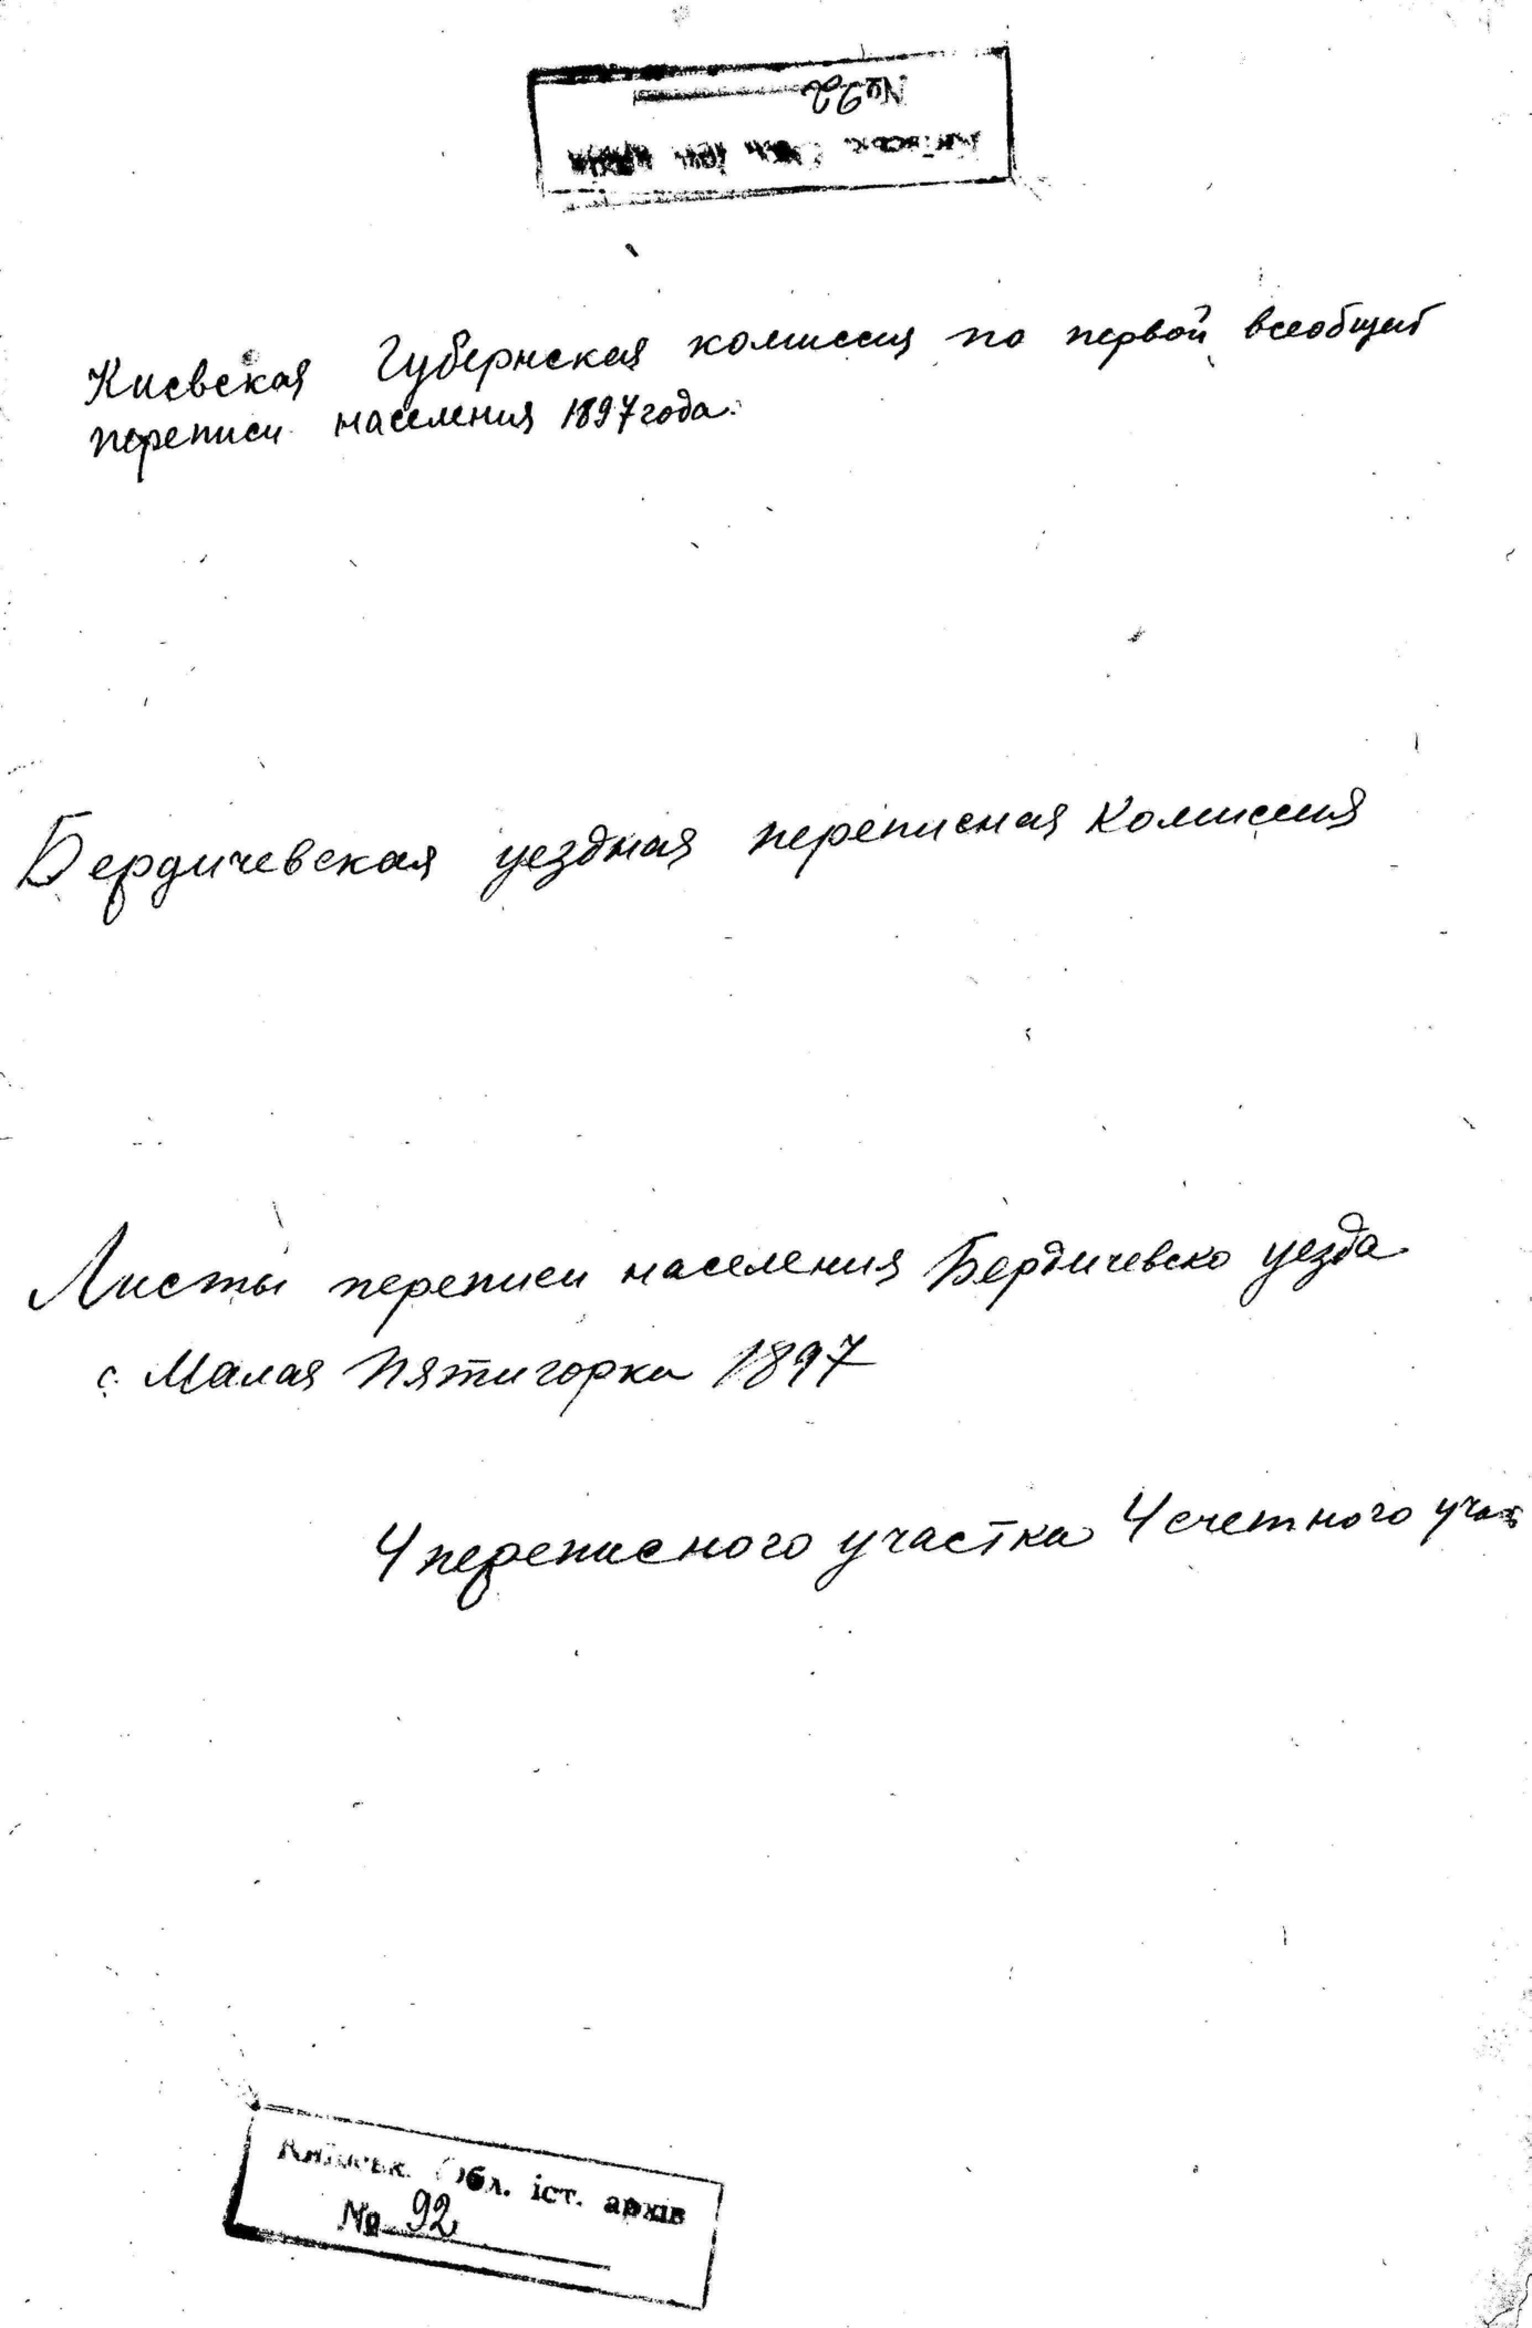 № 92
Киевская Губернская комиссия по первой всеобщей
переписи населения 1897 года.
Бердичевская уездная переписная Комиссия
Листы переписи населения Бердичевско уезда
с. Малая Пятигорка 1897
4 переписного участка 4 счетного учас
Київськ. Обл. іст. архів
№ 92